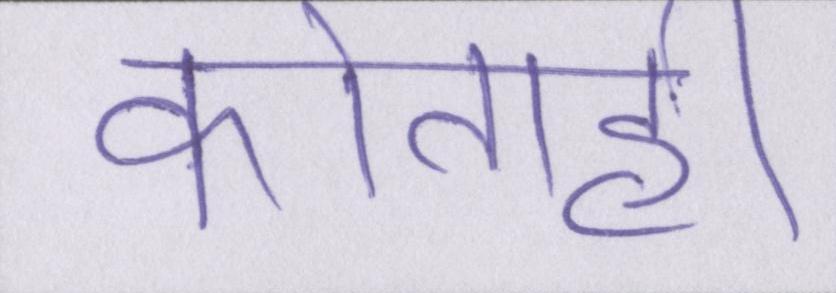 कोताही